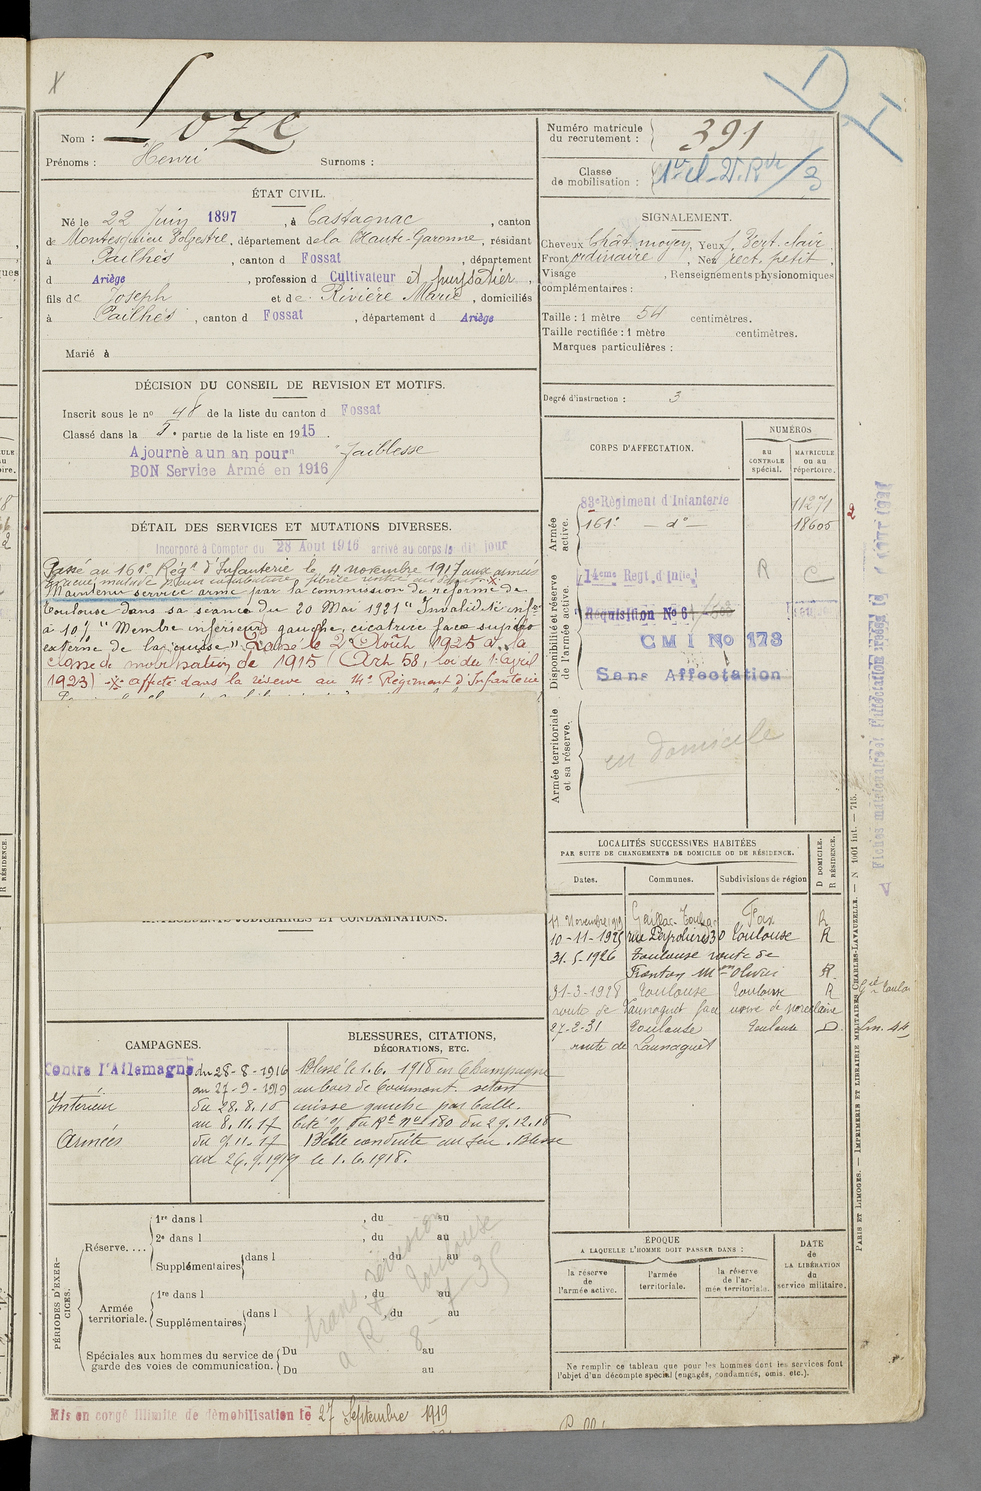 Loze
Nom :
Prénoms : Henri Surnoms :
ÉTAT CIVIL.
Né le 22 Juin 1897, à Castagnac, canton
de Montesquieu Volvestre, département de la Haute-Garonne, résidant
à Pailhès, canton d Fossat, département
d Ariège, profession d Cultivateur et puysatier,
fils de Joseph et de Rivière Marie, domiciliés
à Pailhès, canton d Fossat, département d Ariège
Marié à
DÉCISION DU CONSEIL DE REVISION ET MOTIFS.
Inscrit sous le no 48 de la liste du canton d Fossat
Classé dans la 5e partie de la liste en 1915.
Ajourné a un an pour faiblesse
BON Service Armé en 1916
DÉTAIL DES SERVICES ET MUTATIONS DIVERSES.
Incorporé à Compter du 28 Aout 1916 arrivé au corps le dit jour
Passé au 161e Régt d'Infanterie le 4 novembre 1917 aux armées
Evacué malade
Maintenu service armé par la commission de réforme de
Toulouse dans sa séance du 20 Mai 1921 "Invalidité infre
à 10% "Membre inférieur gauche, cicatrice face supéro
externe de la cuisse" Passé le 2 Août 1925 à la
classe de mobilisation de 1915 (Art 58, loi du 1er avril
1923) affecté dans la réserve au 14e Régiment d'Infanterie
ANTÉCÉDENTS JUDICIAIRES ET CONDAMNATIONS.
CAMPAGNES.
Contre l'Allemagne du 28-8-1916
au 27-9-1919
Intérieur du 28.8.16
au 8.11.17
Armées du 9.11.17
au 26.9.1919
BLESSURES, CITATIONS,
DÉCORATIONS, ETC.
Blessé le 1.6.1918 en Champagne
au bois de Courmont. séton
cuisse gauche par balle.
Cité O/ du Rt no 180 du 29.12.18
Belle conduite au feu. Blessé
le 1.6.1918.
PÉRIODES D'EXERCICES.
Réserve....
1re dans l , du au
2e dans l , du au
Supplémentaires dans l , du au
Armée territoriale.
1re dans l , du au
Supplémentaires dans l , du au
Spéciales aux hommes du service de garde des voies de communication.
Du au
Du au
trans révision
a R Toulouse
Mis en congé illimité de démobilisation le 27 Septembre 1919
Numéro matricule
du recrutement : 391
Classe
de mobilisation :
SIGNALEMENT.
Cheveux Chât. moyen, Yeux Vert clair
Front ordinaire, Nez rect. petit,
Visage , Renseignements physionomiques
complémentaires :
Taille : 1 mètre 54 centimètres.
Taille rectifiée : 1 mètre centimètres.
Marques particulières :
Degré d'instruction : 3
CORPS D'AFFECTATION.
NUMÉROS
AU CONTROLE spécial.
MATRICULE OU AU répertoire.
Armée active.
83e Régiment d'Infanterie 11271
161e — do 18606
Disponibilité et réserve de l'armée active.
14eme Regt. d'Infie R C
Réquisition No 6
CMI No 173
Sans Affectation
Armée territoriale et sa réserve.
en domicile
LOCALITÉS SUCCESSIVES HABITÉES
PAR SUITE DE CHANGEMENTS DE DOMICILE OU DE RÉSIDENCE.
Dates. Communes. Subdivisions de région D DOMICILE. R RÉSIDENCE.
11 Novembre 1919 Gaillac-Toulza Foix R
10-11-1925 rue Peyrolières 30 Toulouse R
31.5.1926 Toulouse route de
Fronton R
31-3-1928 Toulouse Toulouse R
route de Launaguet face usine de porcelaine
27-2-31 Toulouse Toulouse D.
route de Launaguet
ÉPOQUE
A LAQUELLE L'HOMME DOIT PASSER DANS :
la réserve de l'armée active.
l'armée territoriale.
la réserve de l'armée territoriale.
DATE de LA LIBÉRATION du service militaire.
Ne remplir ce tableau que pour les hommes dont les services font
l'objet d'un décompte spécial (engagés, condamnés, omis, etc.).
PARIS ET LIMOGES. — IMPRIMERIE ET LIBRAIRIE MILITAIRES CHARLES-LAVAUZELLE. — N 1001 int. — 715.